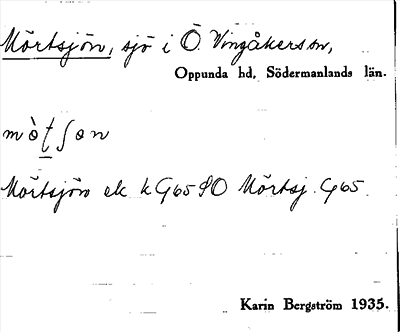 Mörtsjön, sjö i Ö. Vingåkers sn,
Oppunda hd, Södermanlands län.
mö̀t̠ʃøn
Mörtsjön ek k G65 SO Mörtsj. G65.
Karin Bergström 1935.